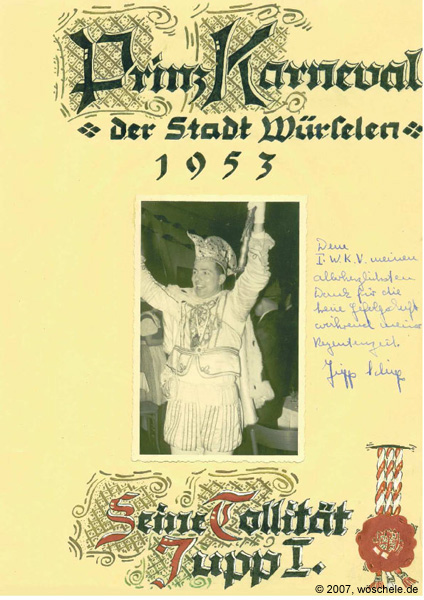 Prinz Karneval
der Stadt Würselen
1953
Dem
I. W. K. V. meinen
allerherzlichsten
Dank für die
treue Gefolgschaft
während meiner
Regentenzeit.
Jupp
Seine Tollität
Jupp I.
© 2007, woschele.de